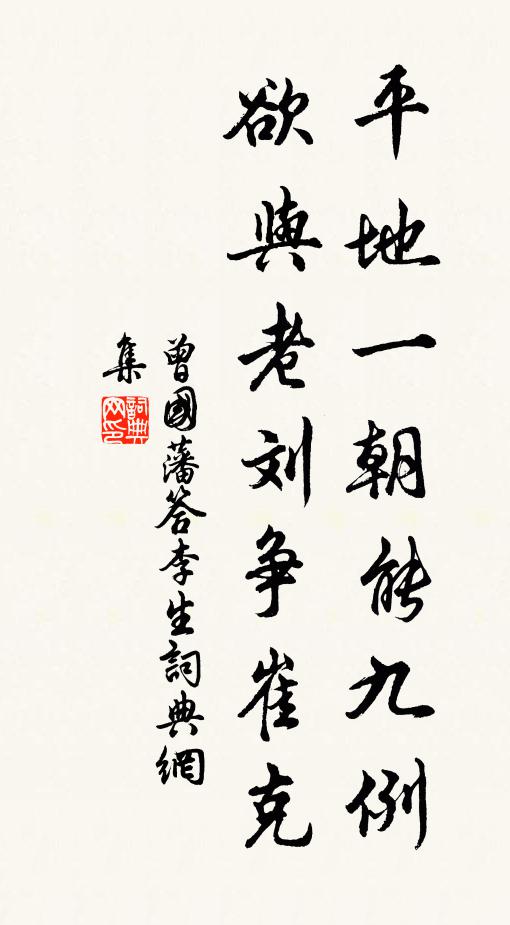 平地一朝能九例
欲與老刘争崔克
曾國藩答李生詞典網
集
詞典
网印